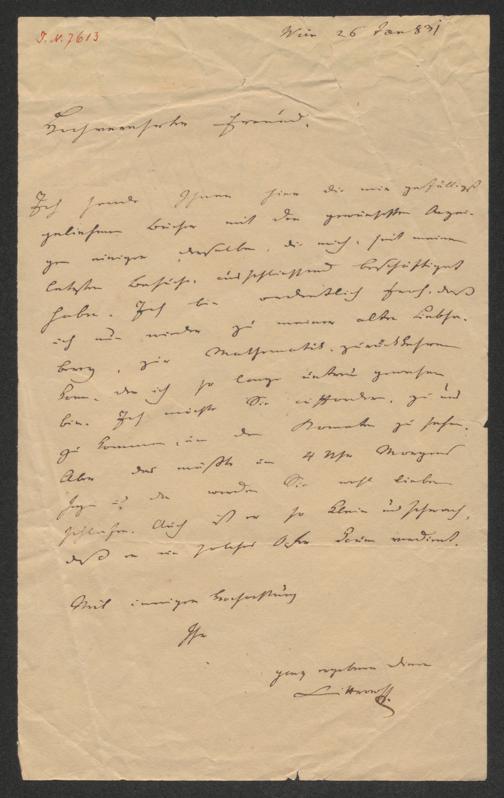 I. N. 7613
Wien 26 Jan 831
Hochverehrter Freund.
Ich sende Ihnen hier die mir gefälligst
geliehenen Bücher mit den gewünschten Anzei-
gen einiger derselben, die mich, seit meinem
letzten Besuche, ausschließend beschäftiget
haben. Ich bin ordentlich froh, daß
ich nun wieder zu meiner alten Liebha-
berey, zur Mathematik, zurückkehren
kann, der ich so lange untreu gewesen
bin. Ich möchte Sie auffordern, zu uns
zu kommen, um den Kometen zu sehen.
Aber das müßte um 4 Uhr Morgens
seyn und da werden Sie wohl lieber
schlafen. Auch ist er so klein und schwach,
daß er ein solches Opfer kaum verdient.
Mit inniger Hochachtung
Ihr
ganz ergebener Diener
Littrow